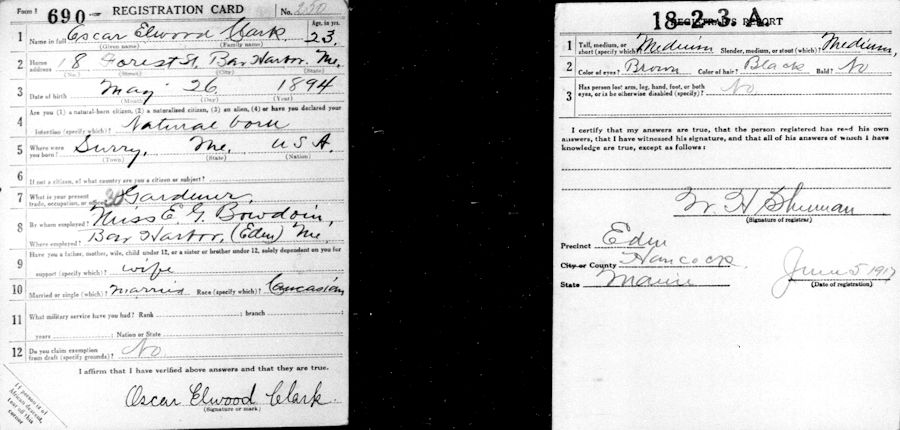 Form 1 690- REGISTRATION CARD No. 220
1 Name in full Oscar Elwood Clark Age, in yrs. 23
(Given name) (Family name)
2 Home address 18 Forest St, Bar Harbor, Me.
(No.) (Street) (City) (State)
3 Date of birth May 26 1894
(Month) (Day) (Year)
Are you (1) a natural-born citizen, (2) a naturalized citizen, (3) an alien, (4) or have you declared your
4 intention (specify which)? Natural born
5 Where were you born? Surry, Me. USA.
(Town) (State) (Nation)
6 If not a citizen, of what country are you a citizen or subject?
7 What is your present trade, occupation, or office? Gardener
8 By whom employed? Miss E. G. Bowdoin,
Where employed? Bar Harbor, (Eden) Me,
9 Have you a father, mother, wife, child under 12, or a sister or brother under 12, solely dependent on you for
support (specify which)? wife
10 Married or single (which)? Married Race (specify which)? Caucasian
11 What military service have you had? Rank ; branch
years ; Nation or State
12 Do you claim exemption from draft (specify grounds)? No
I affirm that I have verified above answers and that they are true.
Oscar Elwood Clark
(Signature or mark)
If person is of
African descent,
tear off this
corner
18-2-3. A
REGISTRAR'S REPORT
1 Tall, medium, or short (specify which)? Medium Slender, medium, or stout (which)? Medium,
2 Color of eyes? Brown Color of hair? Black Bald? No
3 Has person lost arm, leg, hand, foot, or both
eyes, or is he otherwise disabled (specify)? No
I certify that my answers are true, that the person registered has read his own
answers, that I have witnessed his signature, and that all of his answers of which I have
knowledge are true, except as follows:
W. H. Sherman
(Signature of registrar)
Precinct Eden
City or County Hancock
State Maine
June 5 1917
(Date of registration)